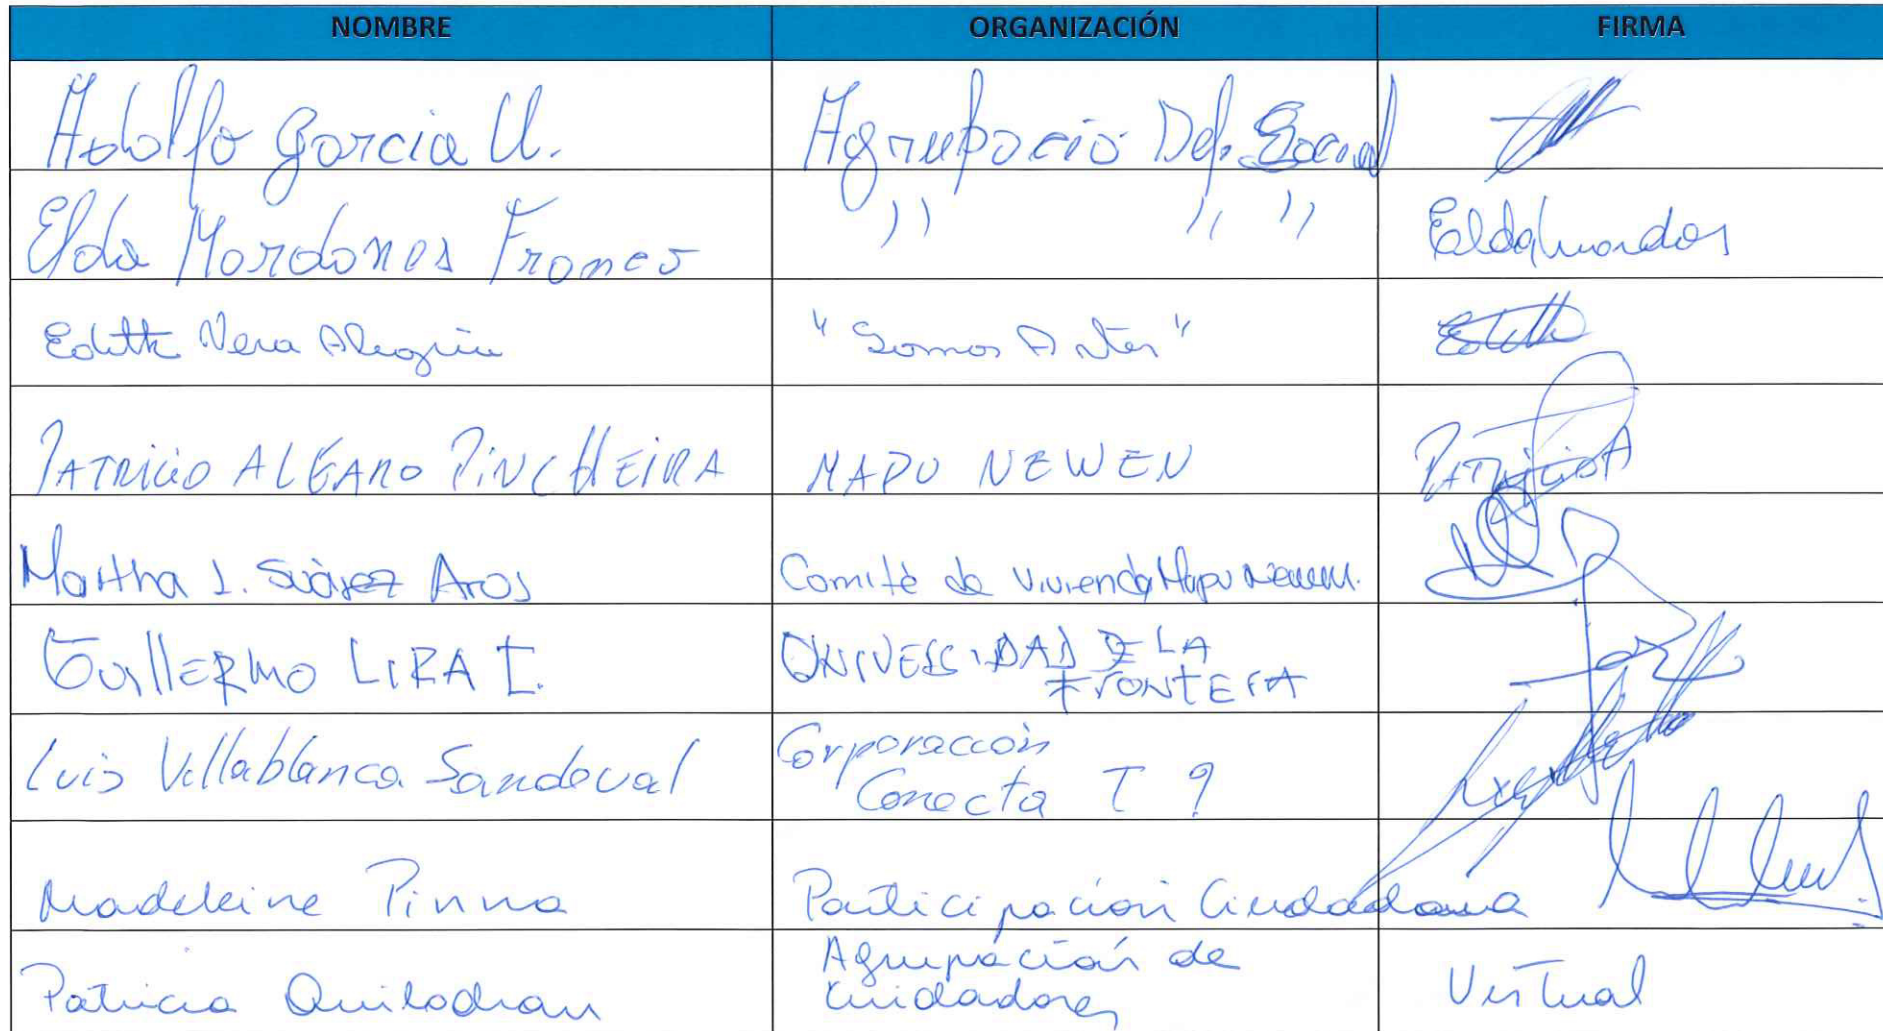 NOMBRE ORGANIZACIÓN FIRMA
Adolfo Garcia U. Agrupació Def. Social
Elda Mordones Franco " " "
Edith Vera Alegría "Somos Antes"
PATRICIO ALFARO PINCHEIRA MAPU NEWEN PATRICIO A
Martha L. Suàrez Aros Comitè de Vivienda Mapu Newen.
GuillERMO LIRA I. UNIVERSIDAD DE LA
FRONTERA
Luis Villablanca Sandoval Corporacción
Conecta T ?
Madeleine Pinna Participación Ciudadana
Patricia Quilodran Agrupación de
Cuidadores Virtual